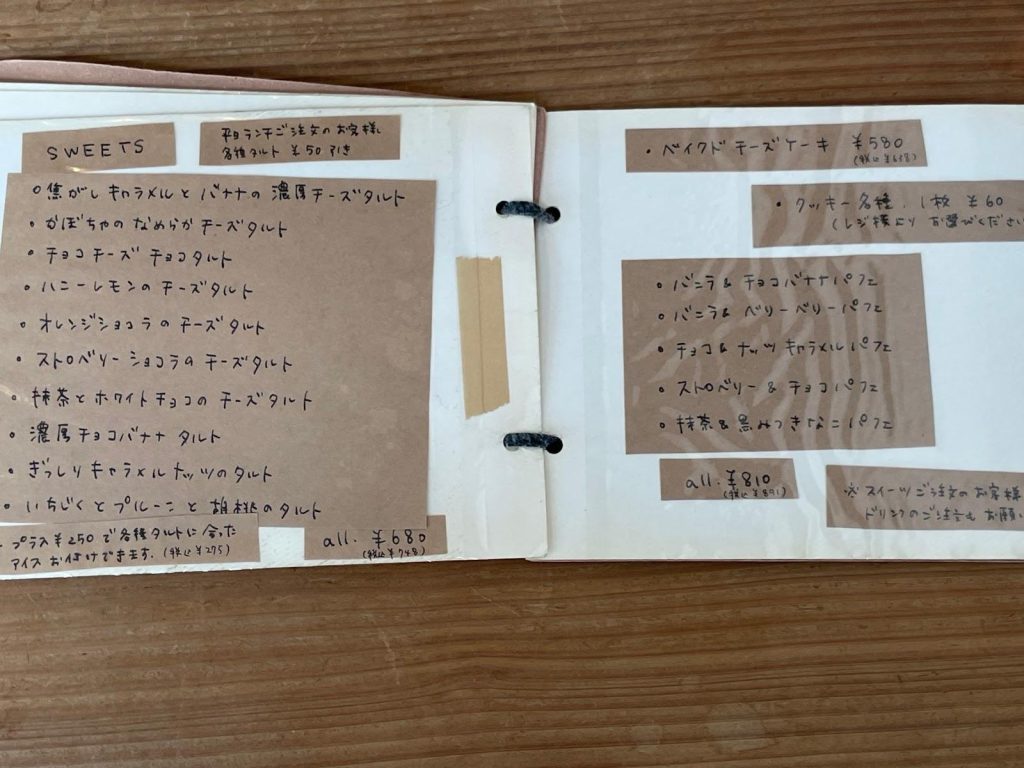 SWEETS
平日ランチご注文のお客様
各種タルト ¥50引き
○焦がしキャラメルとバナナの濃厚チーズタルト
・かぼちゃのなめらかチーズタルト
・チョコチーズチョコタルト
・ハニーレモンのチーズタルト
・オレンジショコラのチーズタルト
・ストロベリーショコラのチーズタルト
・抹茶とホワイトチョコのチーズタルト
・濃厚チョコバナナタルト
・ぎっしりキャラメルナッツのタルト
・いちじくとプルーンと胡桃のタルト
・プラス¥250で各種タルトに合った
アイスお付けできます。(税込¥275)
all. ¥680
(税込¥748)
・ベイクドチーズケーキ ¥580
(税込¥638)
・クッキー各種. 1枚 ¥60
(レジ横よりお選びください
・バニラ&チョコバナナパフェ
・バニラ&ベリーベリーパフェ
・チョコ&ナッツキャラメルパフェ
・ストロベリー&チョコパフェ
・抹茶&黒みつきなこパフェ
all. ¥810
(税込¥891)
※スイーツご注文のお客様
ドリンクのご注文もお願い